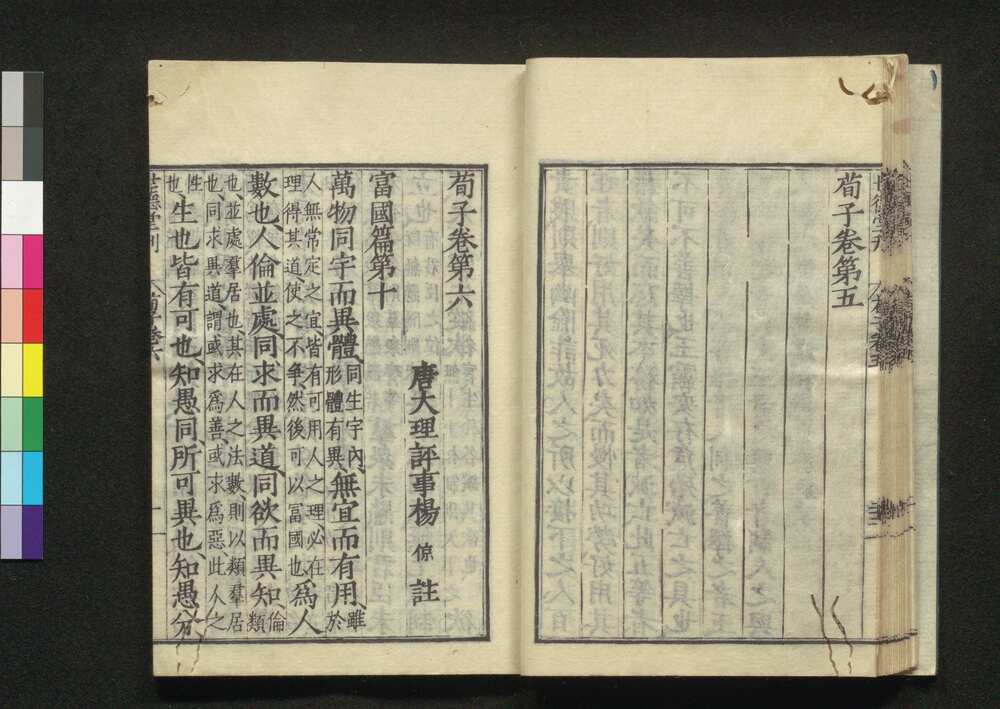 荀子卷第五
荀子卷第六
唐大理評事楊 倞 註
富國篇第十
萬物同宇而異體、同生宇内、形體有異、無宜而有用、雖於
人無常定之宜、皆有可用人之理、必在理得其道、使之不爭、然後可以富國也、爲人
數也、人倫並處同求而異道、同欲而異知、倫類
也、並處羣居也、其在人之法數、則以類羣居也、同求異道、謂或求爲善、或求爲惡、此人之
性也、生也皆有可也、知愚同、所可異也、知愚分、
世德堂刊